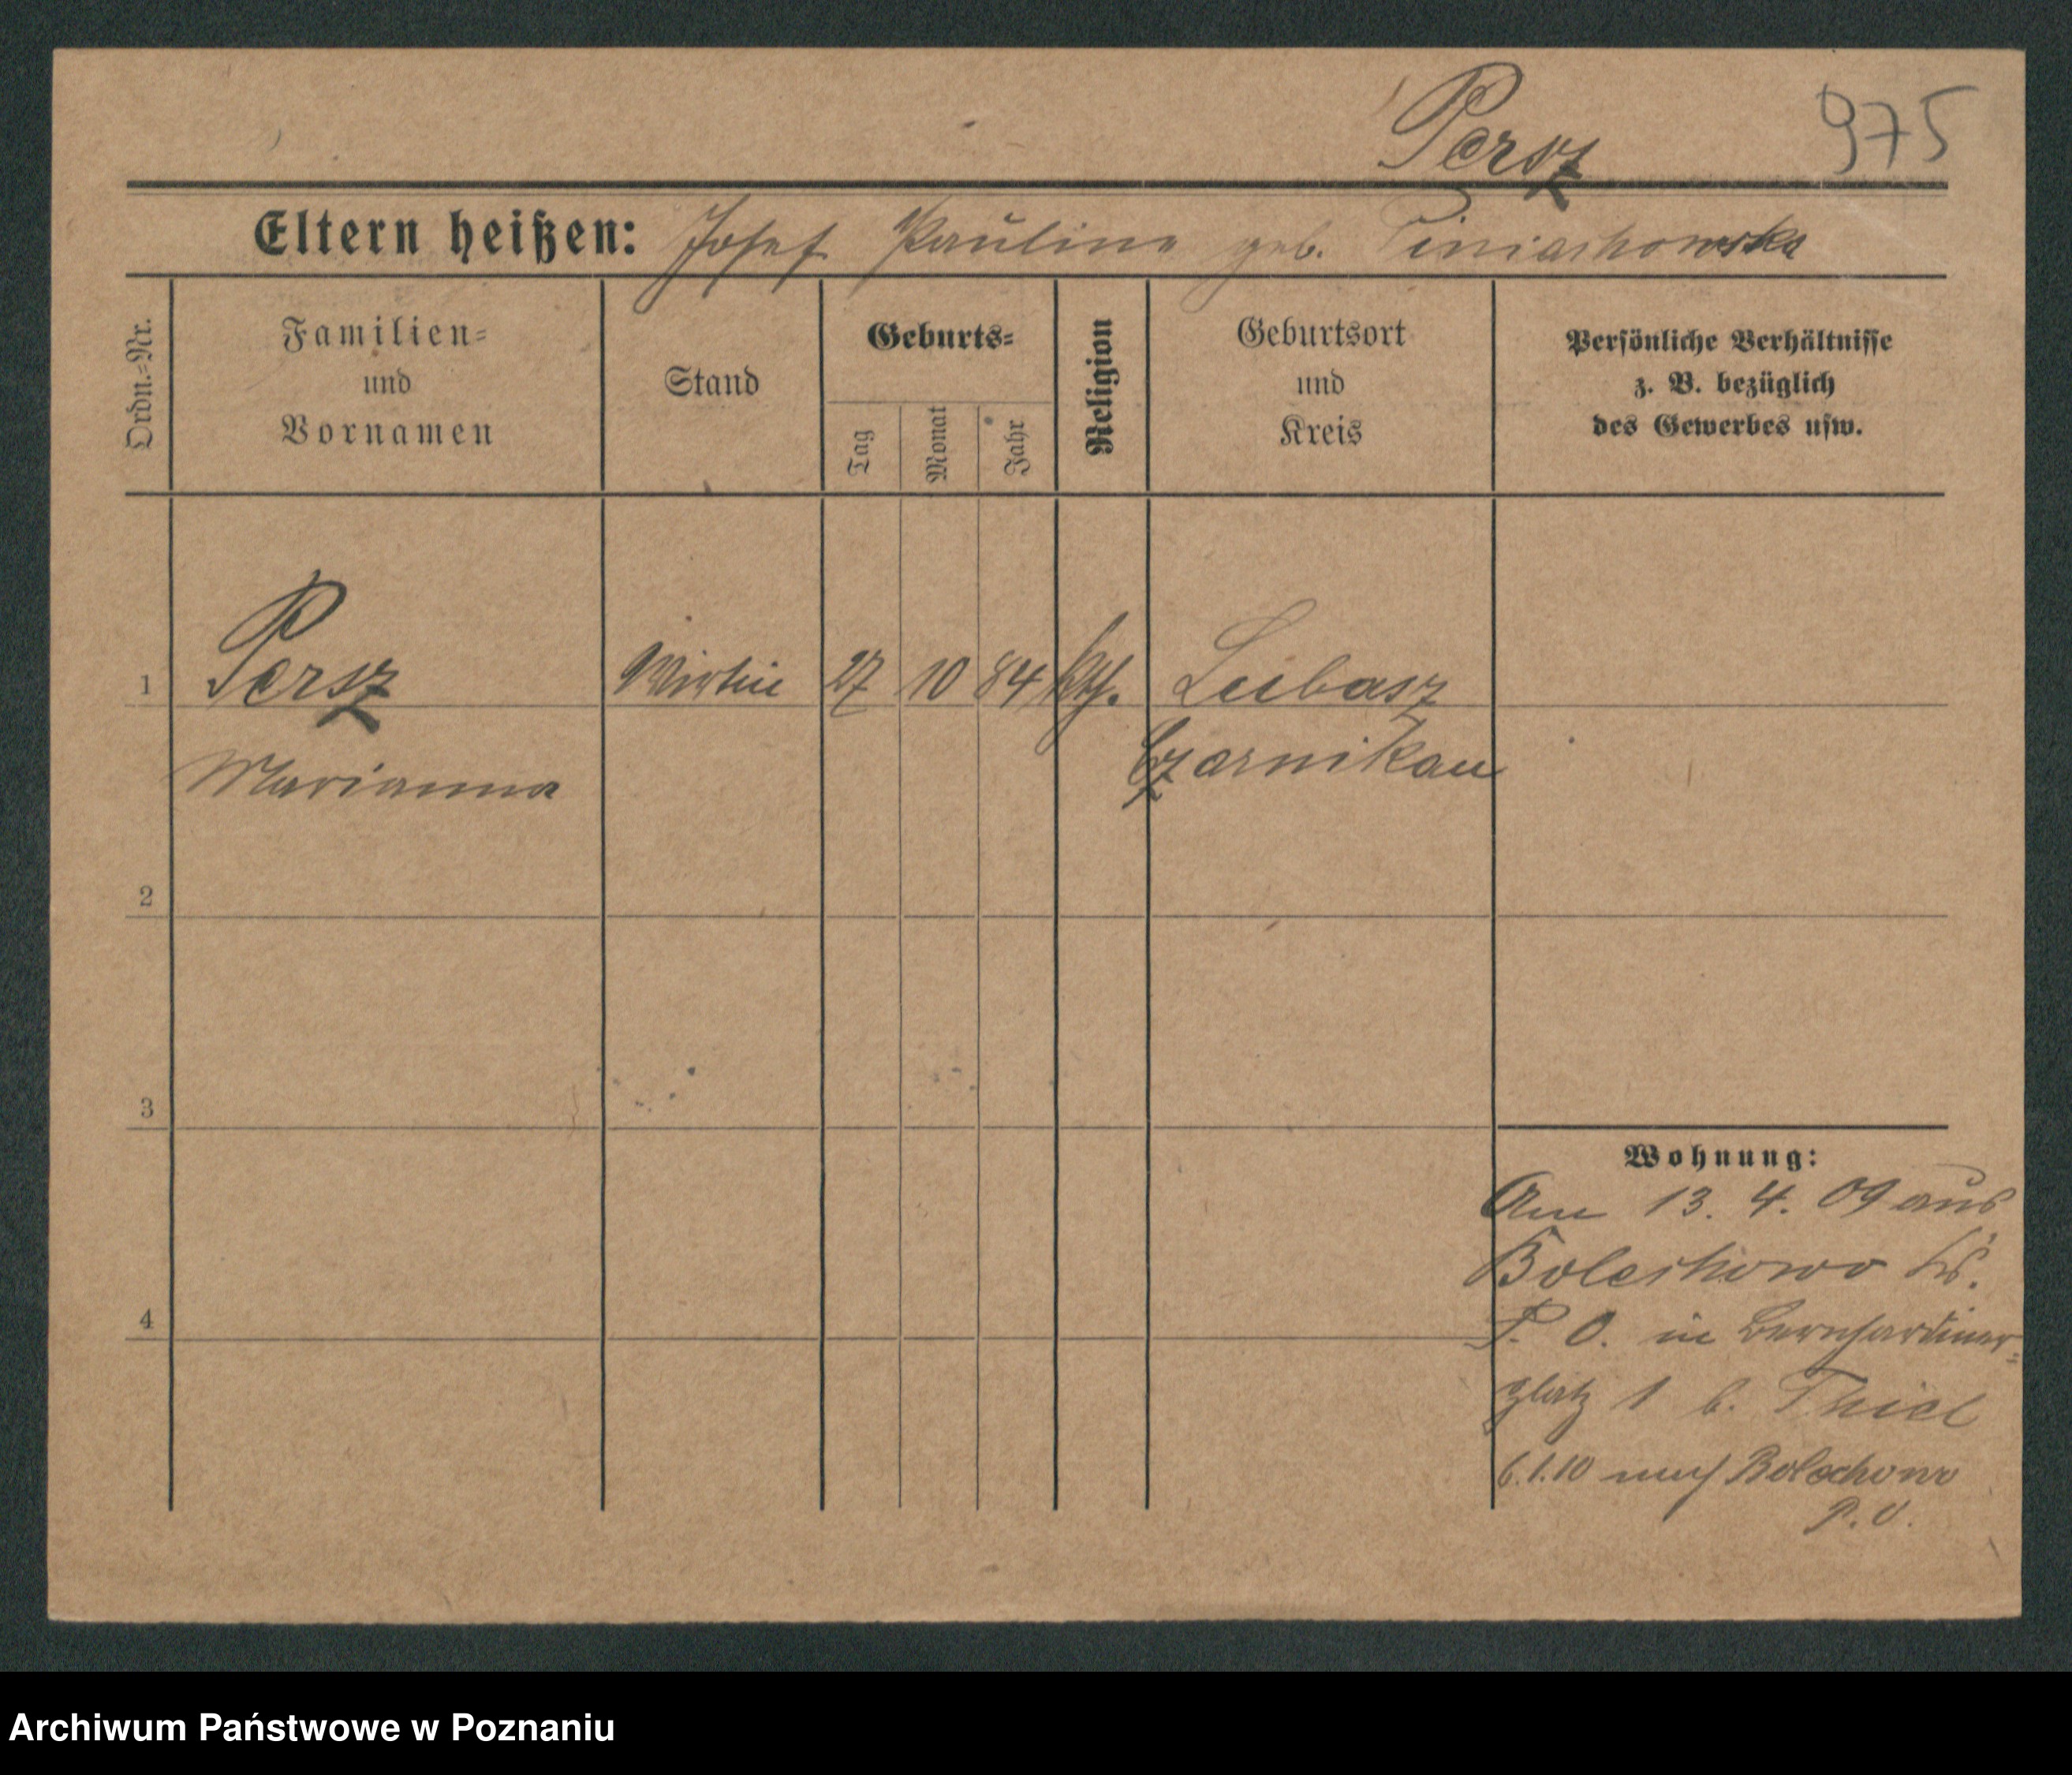 Persz
975
Eltern heißen: Josef Pauline geb.
Ordn.-Nr.
Familien=
und
Vornamen
Stand
Geburts=
Tag
Monat
Jahr
Religion
Geburtsort
und
Kreis
Persönliche Verhältnisse
z. B. bezüglich
des Gewerbes usw.
1 Persz Wirtin 27 10 84 kth. Lubasz
Marianna Czarnikau
2
3
4
Wohnung:
Am 13. 4. 09 aus
Bolechowo Kr.
P. O. in Bernhardiner=
platz 1 b. Thiel
6.1.10 nach Bolechowo
P. O.
Archiwum Państwowe w Poznaniu